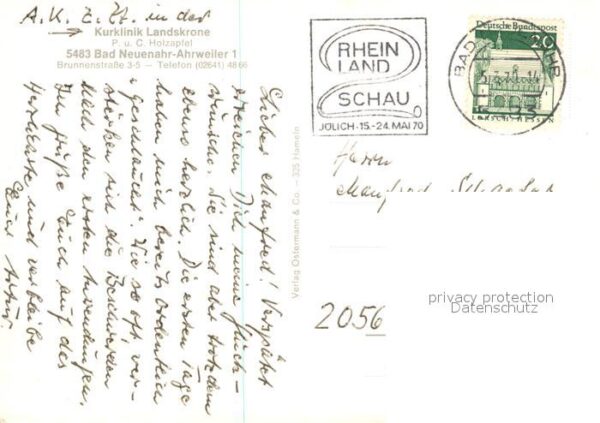 A.K. z. Zt. in der
Kurklinik Landskrone
P. u. C. Holzapfel
5483 Bad Neuenahr-Ahrweiler 1
Brunnenstraße 3-5 — Telefon (02641) 4866
Lieber Manfred! Verspätet
erreichen Dich meine Glück-
wünsche. Sie sind aber trotzdem
ebenso herzlich. Die ersten Tage
haben mich bereits ordentlich
"geschlaucht". Wie so oft ver-
stärken sich die Beschwerden
nach den ersten Anwendungen.
Ich grüße Euch auf das
Herzlichste und verbleibe
Euer
Verlag Ostermann & Co. — 325 Hameln
RHEIN
LAND
SCHAU
JÜLICH-15.-24.MAI 70
Deutsche Bundespost
20
LORSCH/HESSEN
BAD
Herrn
Manfred
2056
privacy protection
Datenschutz